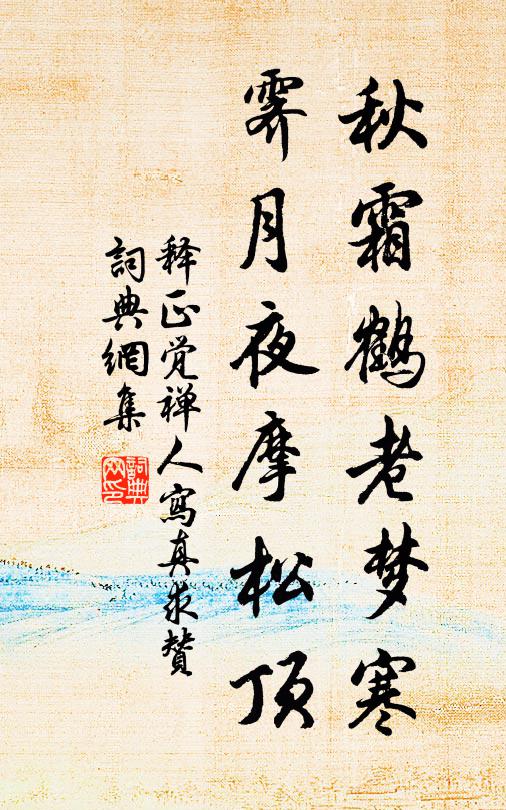 秋霜鹤老梦寒
霁月夜摩松顶
释正觉禅人寫真求贊
詞典網集
詞典网印